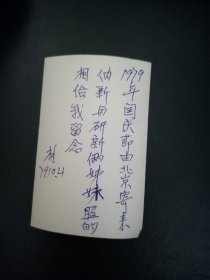 1979年国民节由北京寄来
伯新与研新俩姊妹照的
相给我留念
79.10.4